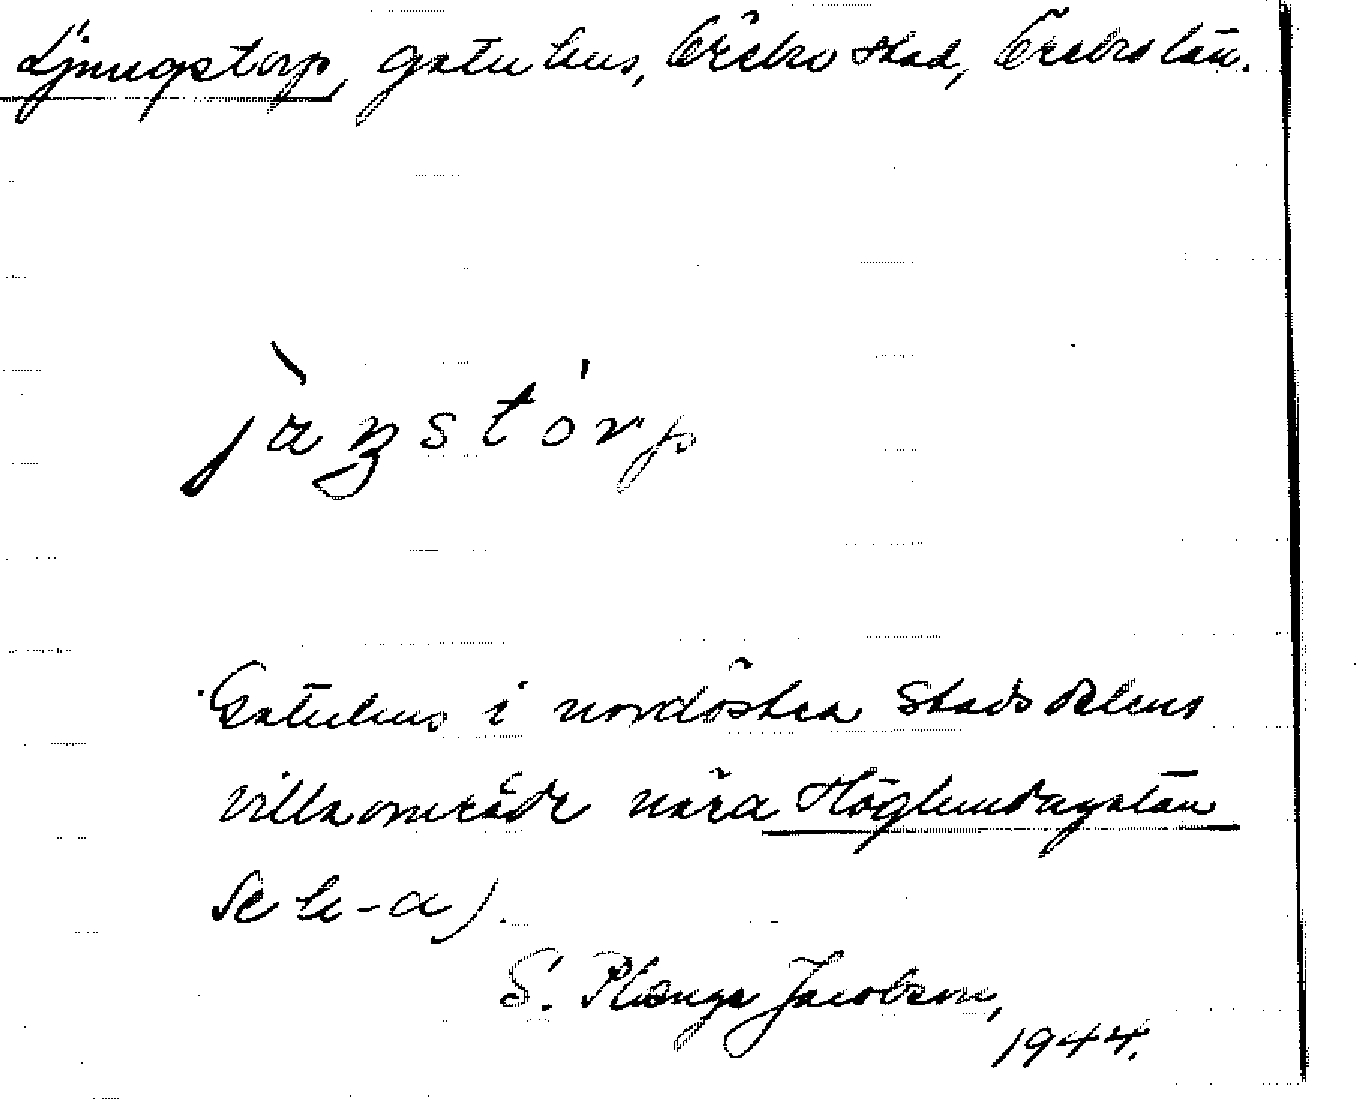 Ljungstorp, gatuhus, Örebro stad, Örebro län.
jàŋstórp
Gatuhus i nordöstra stadsdelens
villaområde nära Höglundagatan
Se h-a).
S. Plænge Jacobson,
1944.